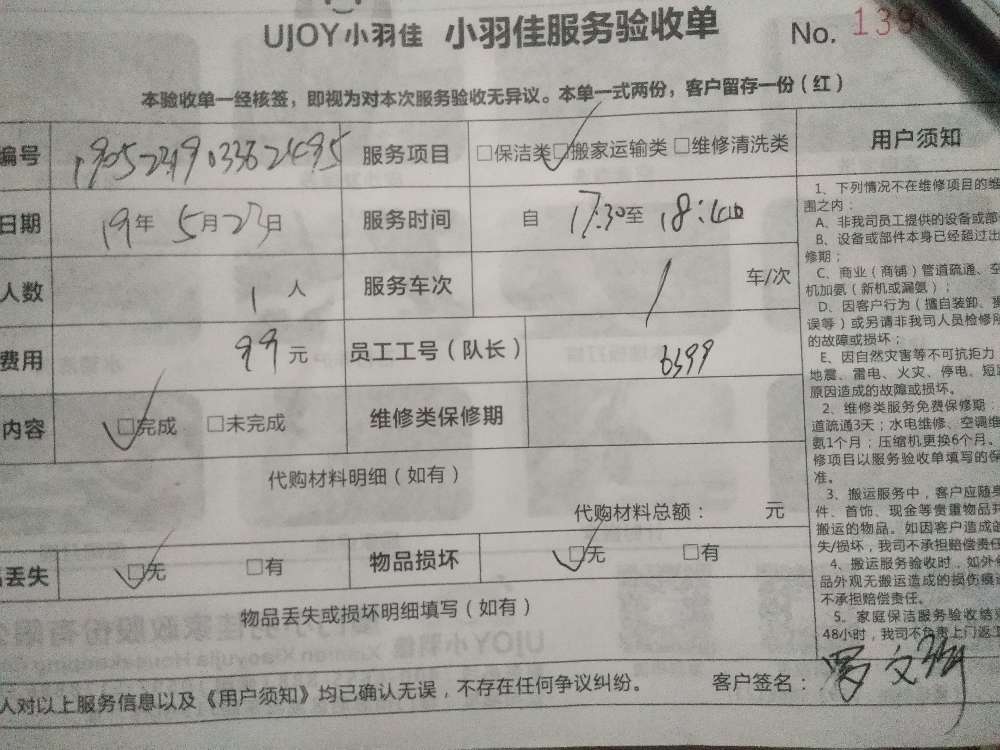 UJOY小羽佳 小羽佳服务验收单 No. 139
本验收单一经核签，即视为对本次服务验收无异议。本单一式两份，客户留存一份（红）
编号 服务项目 □保洁类 □搬家运输类 □维修清洗类
日期 19年5月23日 服务时间 自 17:30至 18:40
人数 1 人 服务车次 1 车/次
费用 99元 员工工号（队长） 6399
内容 □完成 □未完成 维修类保修期
代购材料明细（如有）
代购材料总额： 元
丢失 □无 □有 物品损坏 □无 □有
物品丢失或损坏明细填写（如有）
人对以上服务信息以及《用户须知》均已确认无误，不存在任何争议纠纷。 客户签名：
用户须知
1、下列情况不在维修项目的维
围之内：
A、非我司员工提供的设备或部
B、设备或部件本身已经超过出
修期；
C、商业（商铺）管道疏通、空
机加氨（新机或漏氨）；
D、因客户行为（擅自装卸、
误等）或另请非我司人员检修所
的故障或损坏；
E、因自然灾害等不可抗拒力
地震、雷电、火灾、停电、短
原因造成的故障或损坏。
2、维修类服务免费保修期：
道疏通3天；水电维修、空调维
氨1个月；压缩机更换6个月。
修项目以服务验收单填写的保
准。
3、搬运服务中，客户应随身
件、首饰、现金等贵重物品并
搬运的物品。如因客户造成
失/损坏，我司不承担赔偿责任
4、搬运服务验收时，如外
品外观无搬运造成的损伤痕
不承担赔偿责任。
5、家庭保洁服务验收结
48小时，我司不负责上门返工